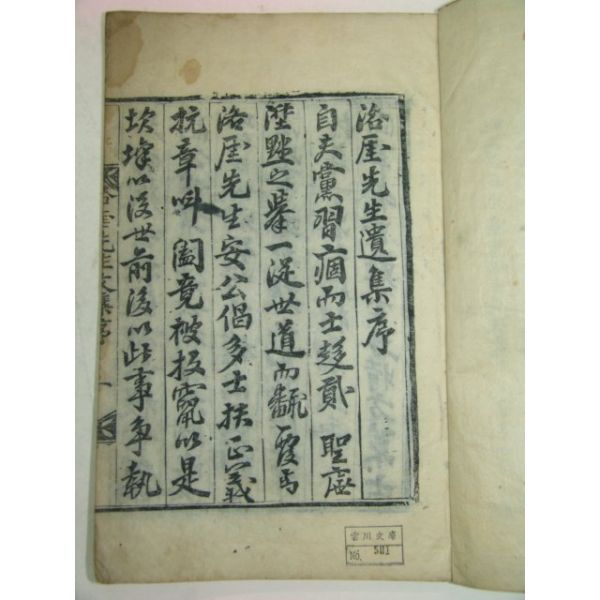 洛厓先生遺集序
自夫黨習痼而士趍貳 聖廡
陞黜之擧一從世道而飜覆焉
洛厓先生安公倡多士扶正義
抗章叫 闔竟被投竄以是
坎壈以沒世前後以此事爭執
洛厓先生文集序 一
雲川文庫
No. 581